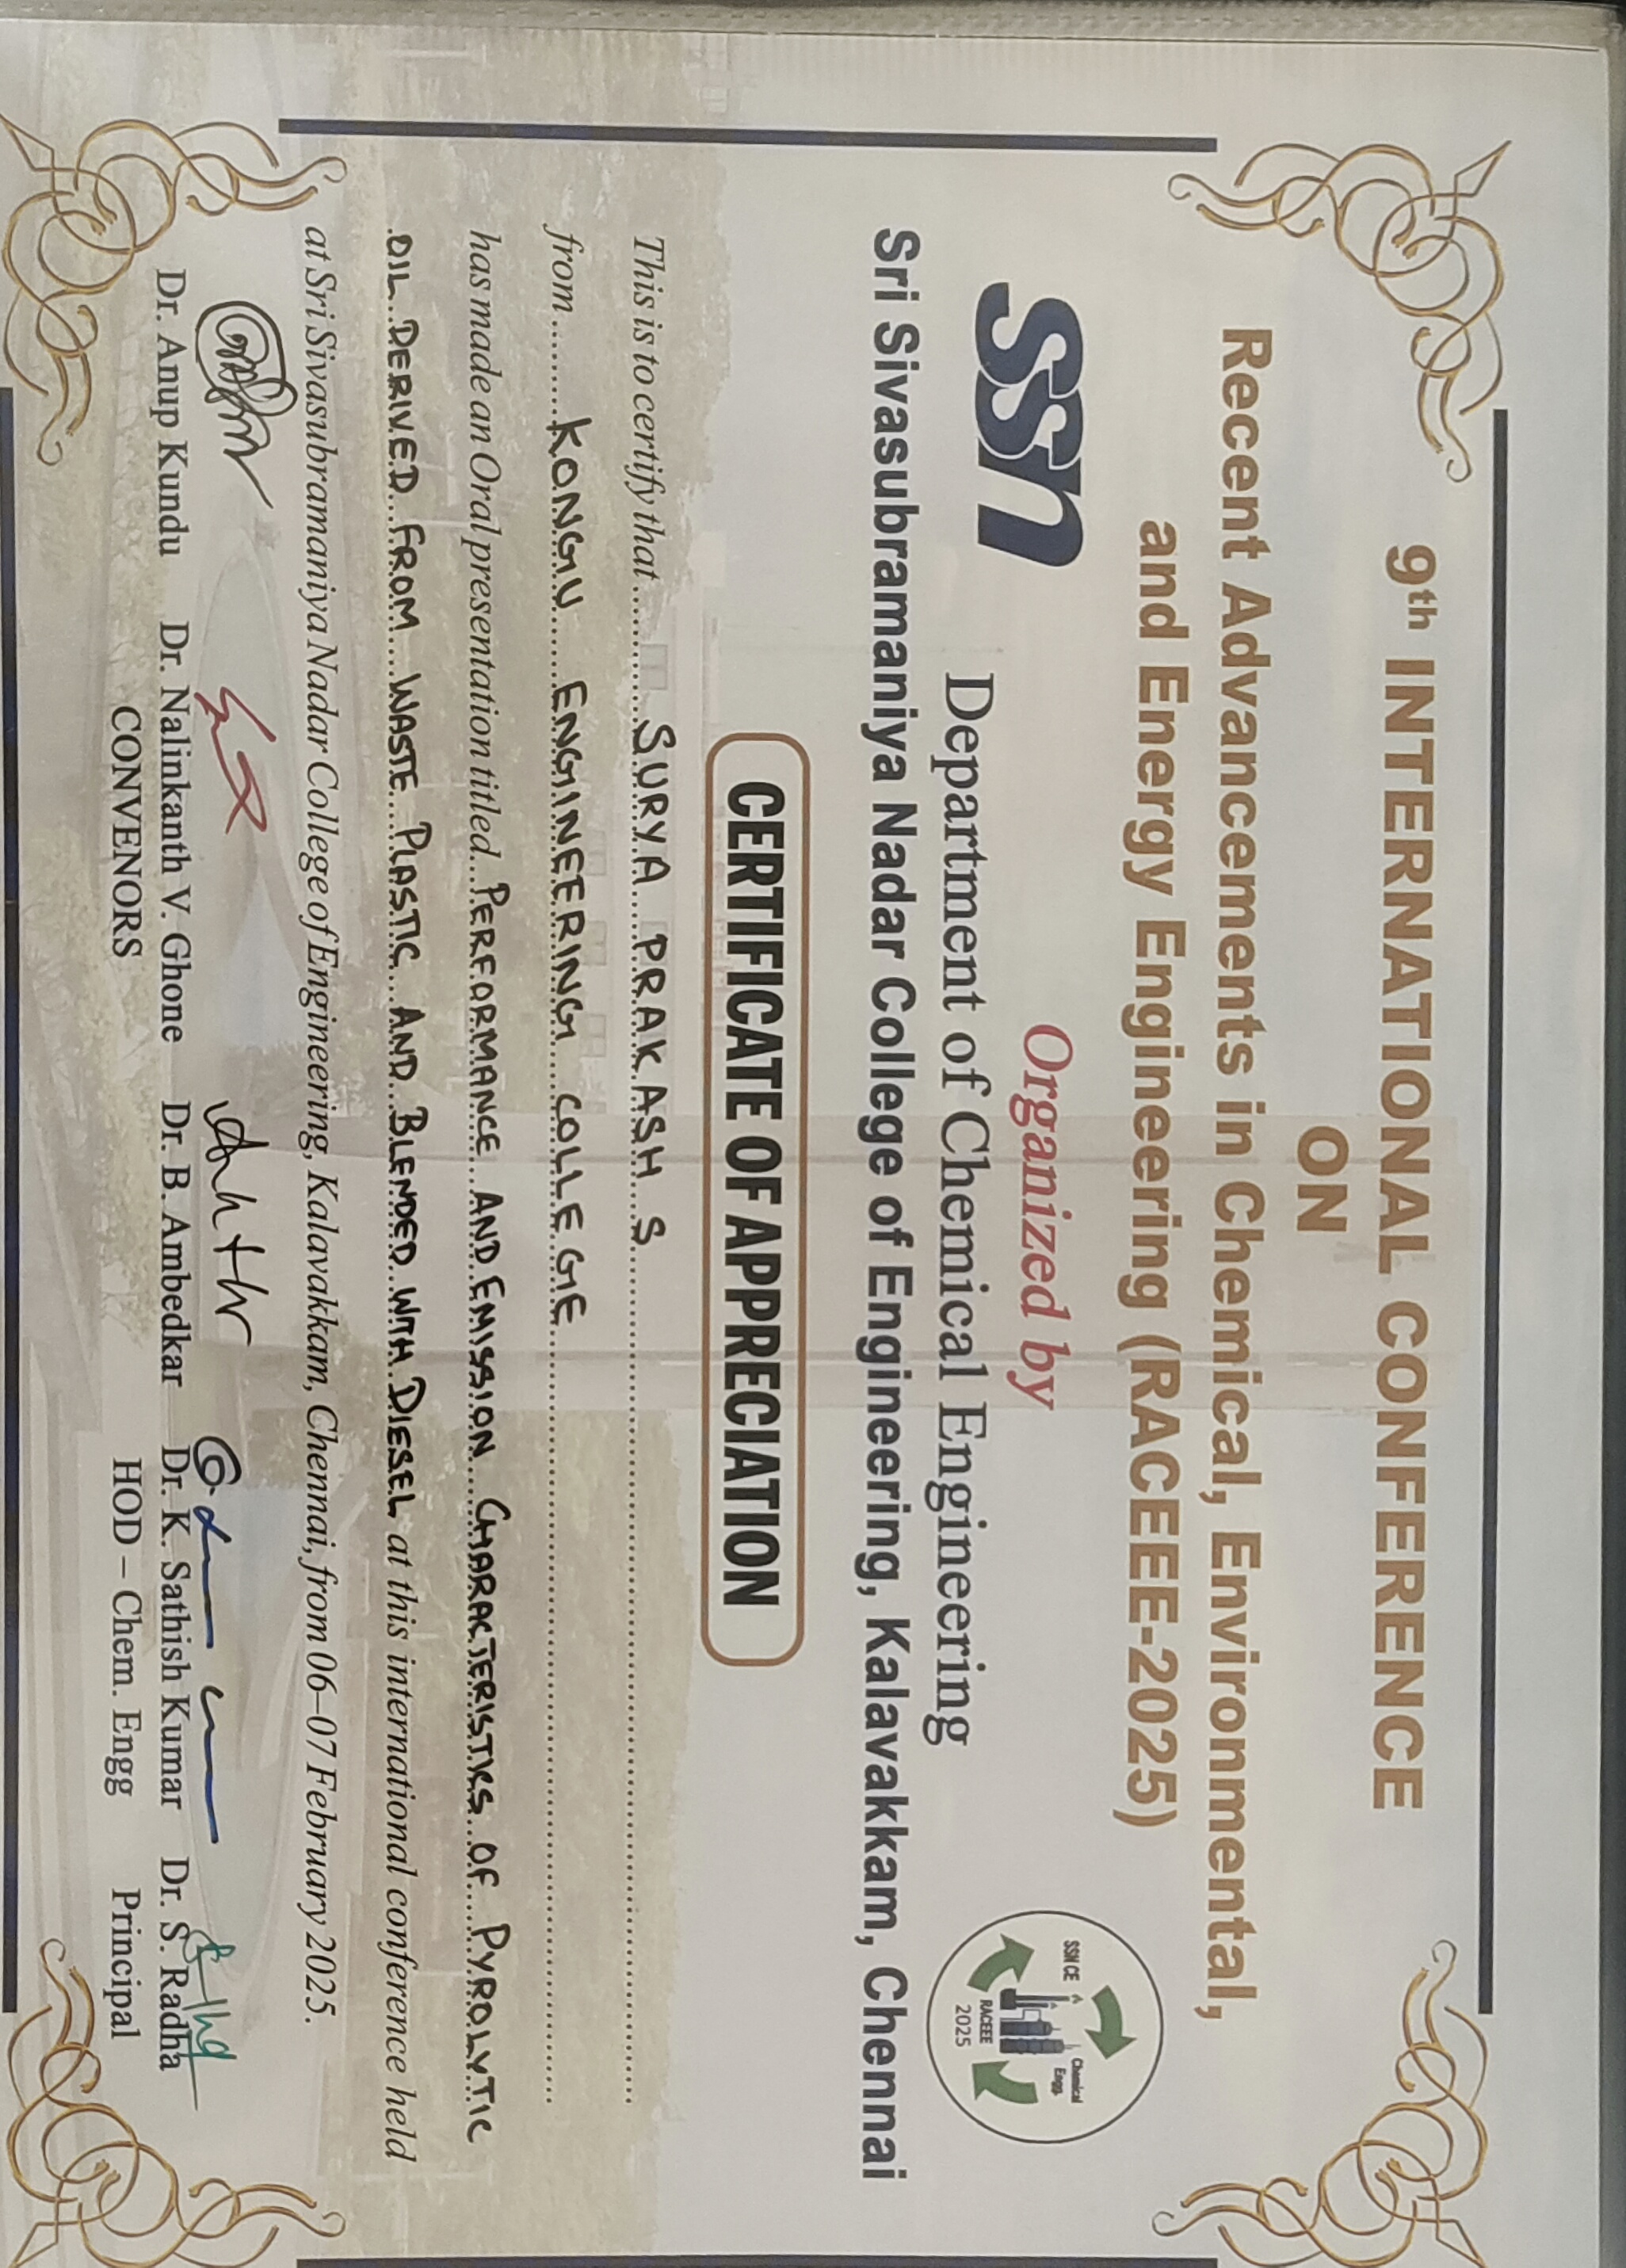 9th INTERNATIONAL CONFERENCE
ON
Recent Advancements in Chemical, Environmental,
and Energy Engineering (RACEEE-2025)
Organized by
ssn
Department of Chemical Engineering
SSN CE
Chemical
Engg.
RACEEE
2025
Sri Sivasubramaniya Nadar College of Engineering, Kalavakkam, Chennai
CERTIFICATE OF APPRECIATION
This is to certify that SURYA PRAKASH S
from KONGU ENGINEERING COLLEGE
has made an Oral presentation titled PERFORMANCE AND EMISSION CHARACTERISTICS OF PYROLYTIC
OIL DERIVED FROM WASTE PLASTIC AND BLENDED WITH DIESEL at this international conference held
at Sri Sivasubramaniya Nadar College of Engineering, Kalavakkam, Chennai, from 06–07 February 2025.
Dr. Anup Kundu Dr. Nalinkanth V. Ghone Dr. B. Ambedkar Dr. K. Sathish Kumar Dr. S. Radha
CONVENORS HOD – Chem. Engg Principal